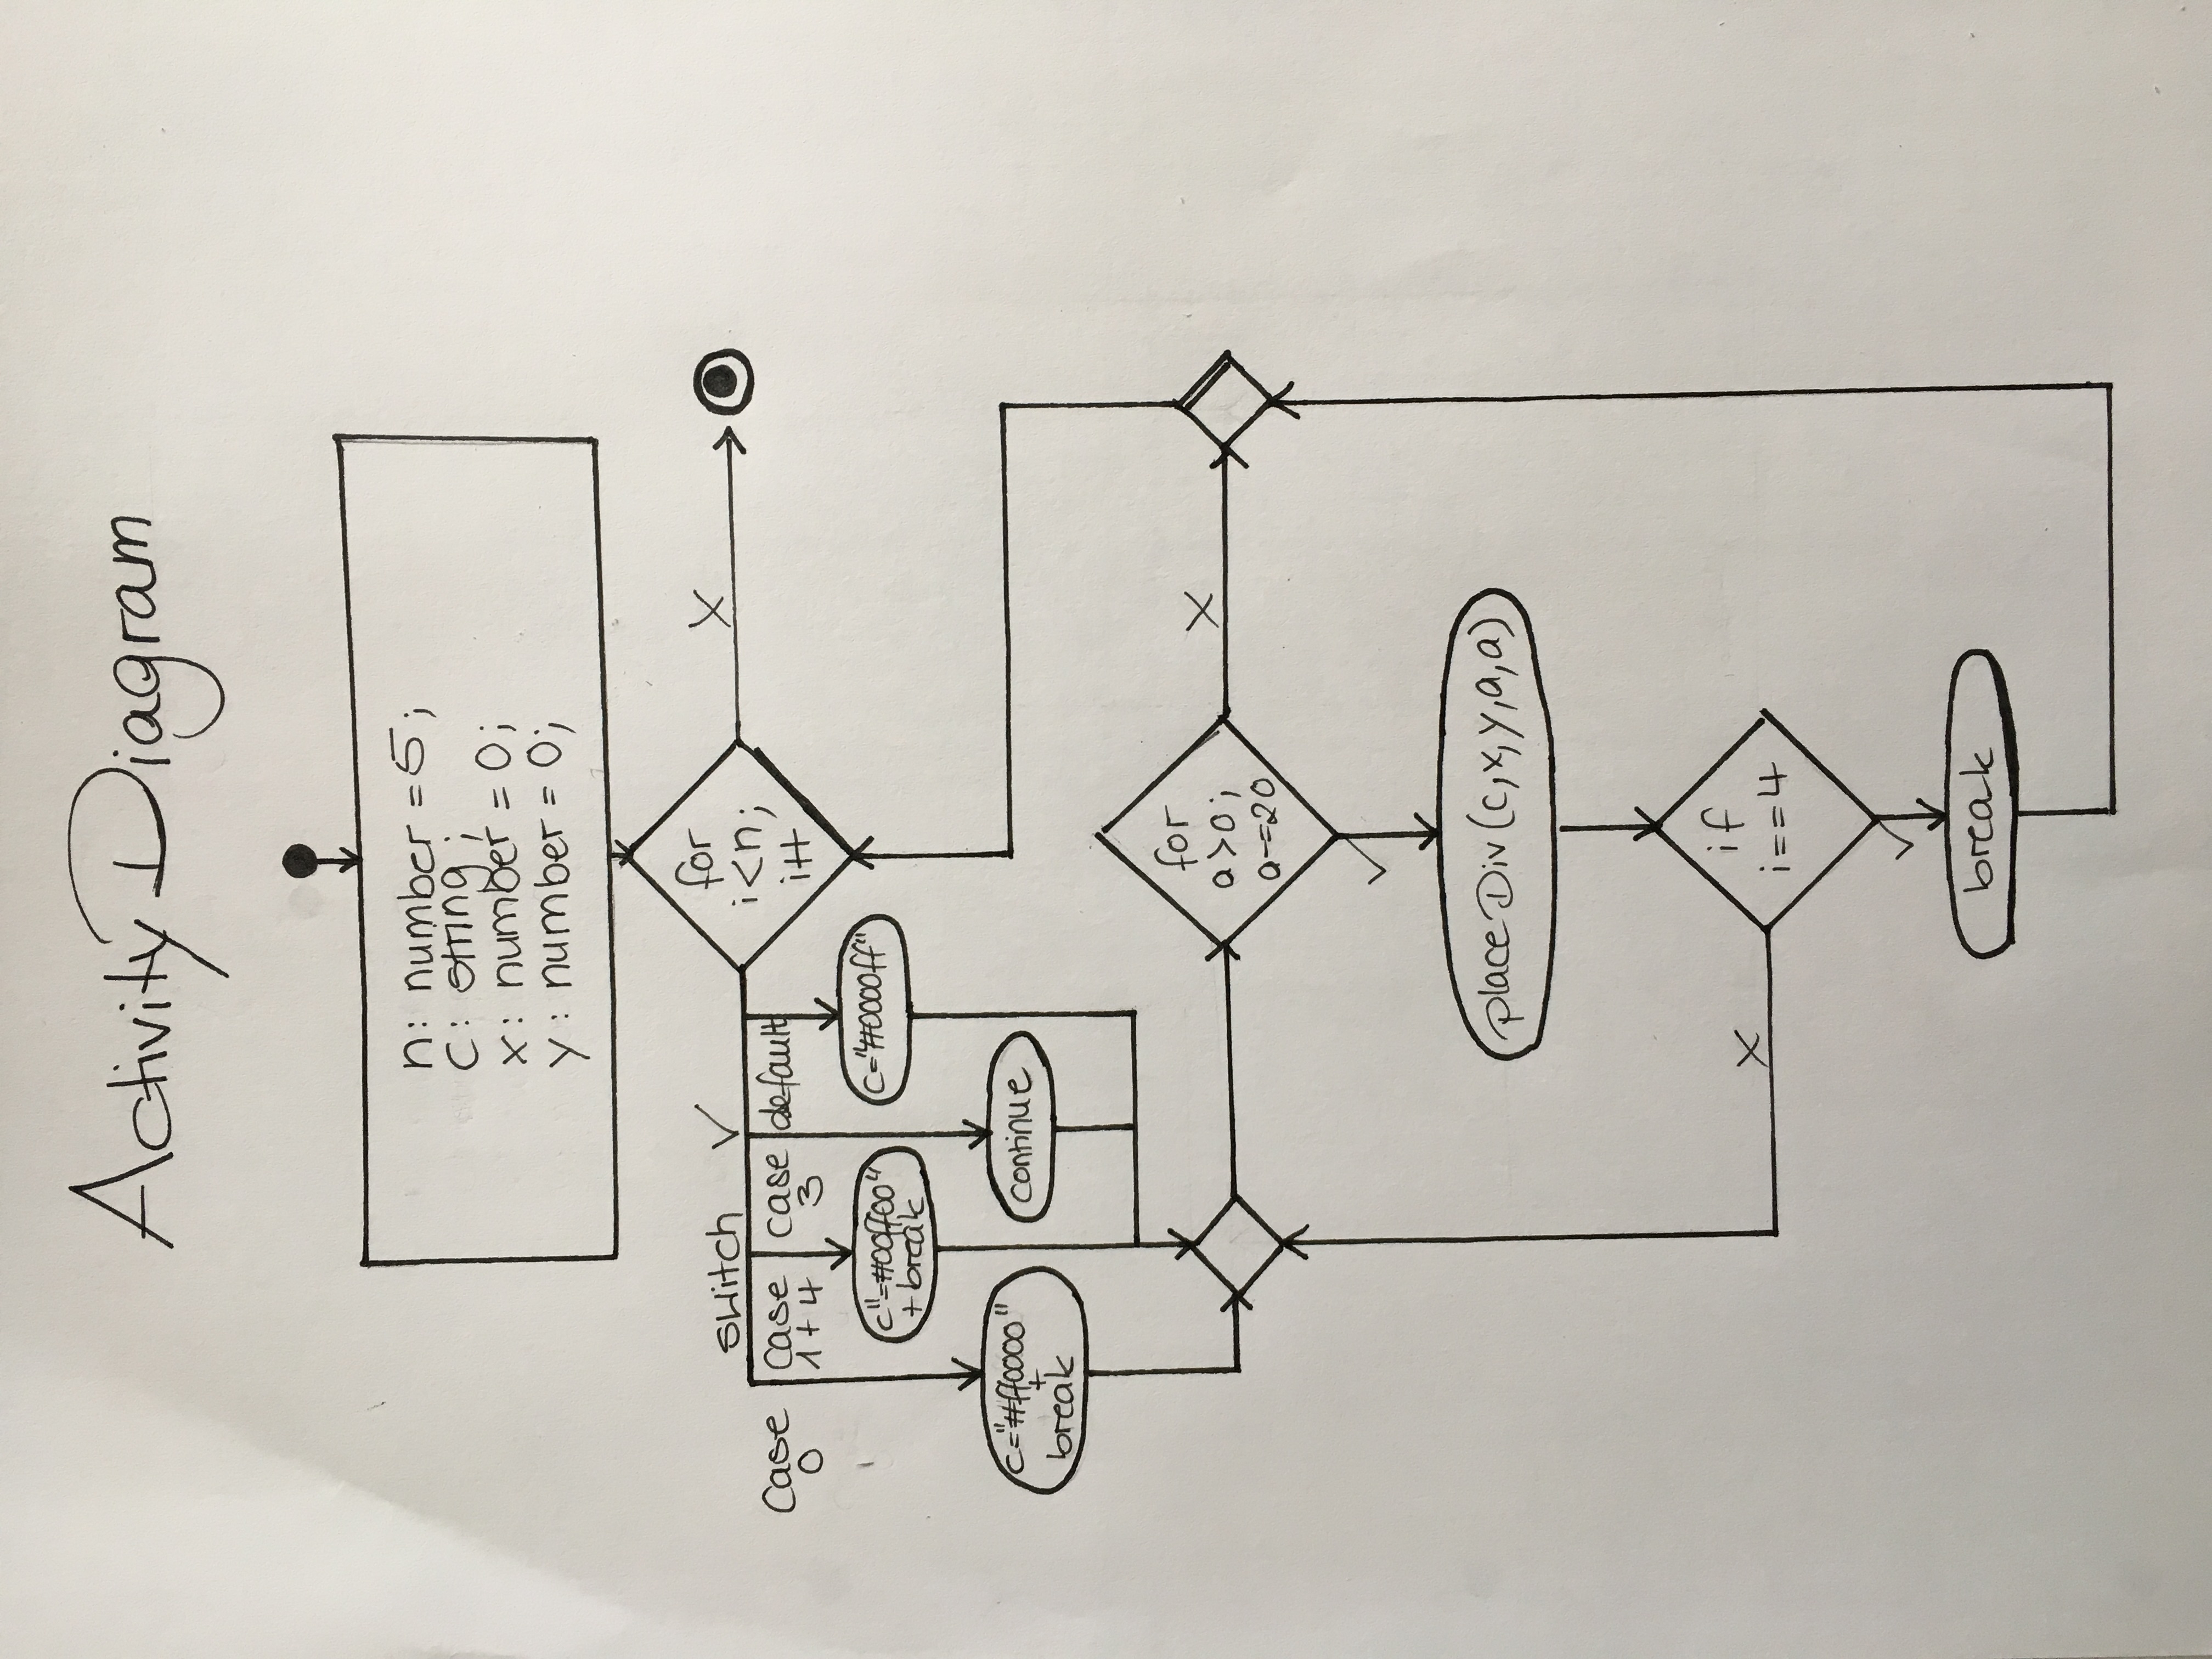 Activity Diagram
n: number = 5;
c: string;
x: number = 0;
y: number = 0;
for
i<n;
i++
X
switch ✓
case
0
case
1+4
case
3
default
c"=#00ff00"
+ break
c="#0000ff"
c="#ff0000"
+
break
continue
for
a>0;
a-=20
X
✓
placeDiv(c,x,y,a,a)
if
i==4
X
✓
break